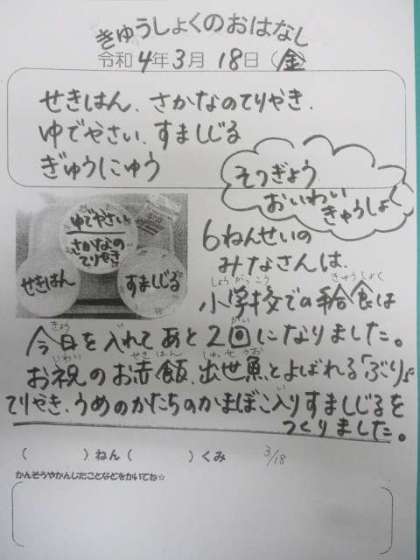 きゅうしょくのおはなし
令和4年3月18日(金)
せきはん、さかなのてりやき、
ゆでやさい、すましじる
ぎゅうにゅう
そつぎょう
おいわい
きゅうしょく
ゆでやさい
さかなの
てりやき
せきはん
すましじる
6ねんせいの
みなさんは、
小学校での給食は
今日を入れてあと2回になりました。
お祝のお赤飯、出世魚とよばれる「ぶり」の
てりやき、うめのかたちのかまぼこ入りすましじるを
つくりました。
( )ねん( )くみ 3/18
かんそうやかんじたことなどをかいてね☆